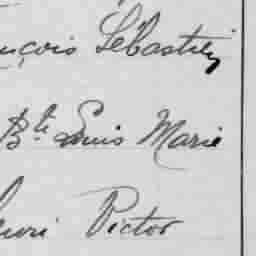 nçois Sébastien
Bte Louis Marie
enri Victor